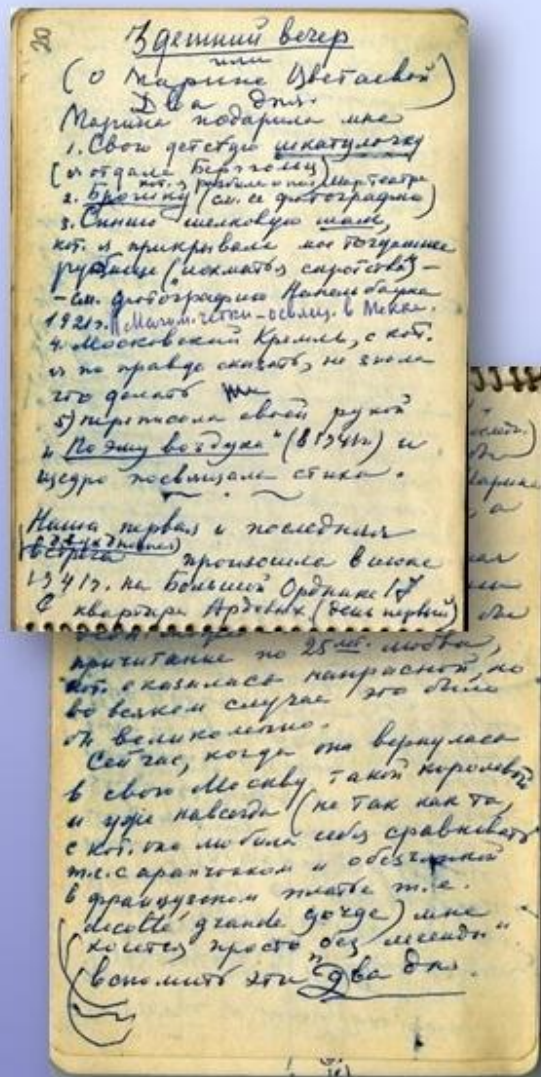 20
Здешний вечер
или
(О Марине Цветаевой)
Два дня.
Марина подарила мне
1. Свою детскую шкатулочку
(я отдала Берггольц)
2. Брошку (см. ее фотографию)
кот. я разбила о пол
3. Синий шелковую шаль,
кот. я прикрывала мое тогдашнее
рубище ("лохмотья сиротства") –
– см. фотографию Наппельбаума
1921 г.
4. Московский Кремль, с кот.
я по правде сказать, не знала
что делать
5) переписала своей рукой
"Поэму воздуха" (в 1941 г.) и
щедро посвящала стихи.
Наша первая и последняя
встреча произошла в июне
(двухдневная)
1941 г. на Большой Ордынке 17
в квартире Ардовых (день первый)
причитание по 25 лет. любви,
кот. оказалась напрасной, но
во всяком случае это было
бы великолепно.
Сейчас, когда она вернулась
в свою Москву такой королевой
и уже навсегда (не так как та,
с кот. она любила себя сравнивать
т.е. с арапчонком и обезьянкой
в французском платье т.е.
décolleté grande gorge) мне
хочется просто "без легенды"
вспомнить эти "Два дня.